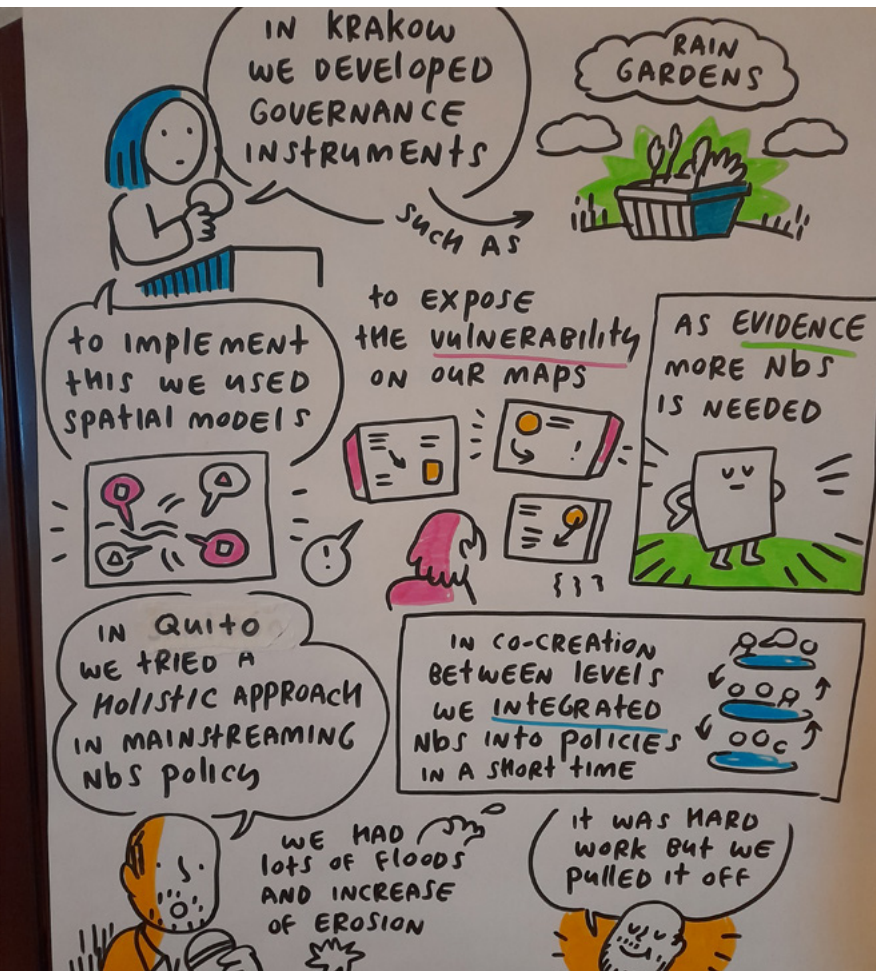 IN KRAKOW
WE DEVELOPED
GOVERNANCE
INSTRUMENTS
SUCH AS
RAIN
GARDENS
TO IMPLEMENT
THIS WE USED
SPATIAL MODELS
TO EXPOSE
THE VULNERABILITY
ON OUR MAPS
!
!
AS EVIDENCE
MORE NbS
IS NEEDED
IN QUITO
WE TRIED A
HOLISTIC APPROACH
IN MAINSTREAMING
NbS POLICY
IN CO-CREATION
BETWEEN LEVELS
WE INTEGRATED
NbS INTO POLICIES
IN A SHORT TIME
WE HAD
LOTS OF FLOODS
AND INCREASE
OF EROSION
IT WAS HARD
WORK BUT WE
PULLED IT OFF